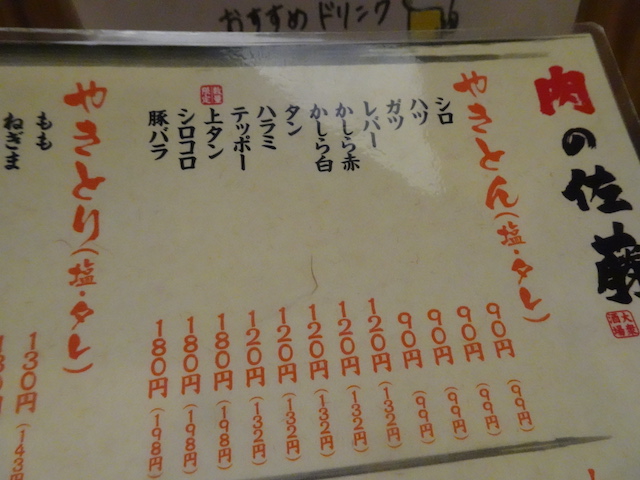 おすすめドリンク
肉の佐藤
大衆酒場
やきとん(塩・タレ)
シロ 90円(99円)
ハツ 90円(99円)
ガツ 90円(99円)
レバー 90円(99円)
かしら赤 120円(132円)
かしら白 120円(132円)
タン 120円(132円)
ハラミ 120円(132円)
テッポー 120円(132円)
数量限定 上タン 180円(198円)
シロコロ 180円(198円)
豚バラ 180円(198円)
やきとり(塩・タレ)
もも 130円(143円
ねぎま